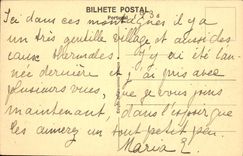 BILHETE POSTAL
Portugal
Ici dans ces montagnes il y a
un très gentille village et aussi des
eaux thermales. J'y ai été l'an-
née dernière et j'ai pris avec
plusieurs vues, que je vous joins
maintenant, dans l'espoir que
les aimerez un tout petit peu.
Maria E.